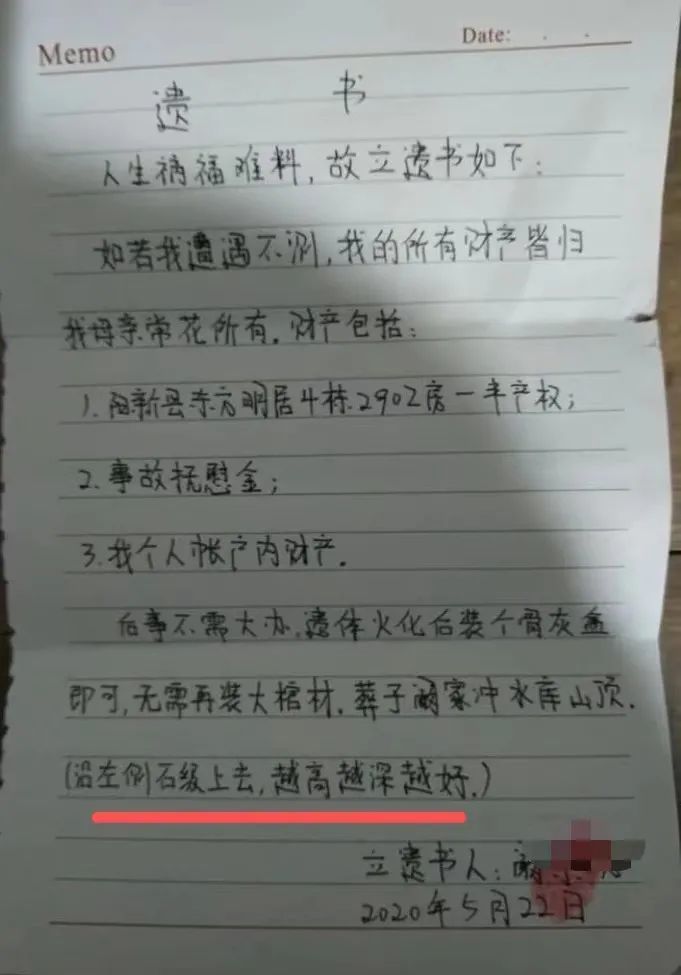 Memo
Date:
遗 书
人生祸福难料，故立遗书如下：
如若我遭遇不测，我的所有财产皆归
我母亲常花所有。财产包括：
1. 阳新县东方明居4栋2902房一半产权；
2. 事故抚慰金；
3. 我个人帐户内财产。
后事不需大办，遗体火化后装个骨灰盒
即可，无需再装大棺材。葬于阚家冲水库山顶。
（沿左侧石级上去，越高越深越好。）
立遗书人：
2020年5月22日